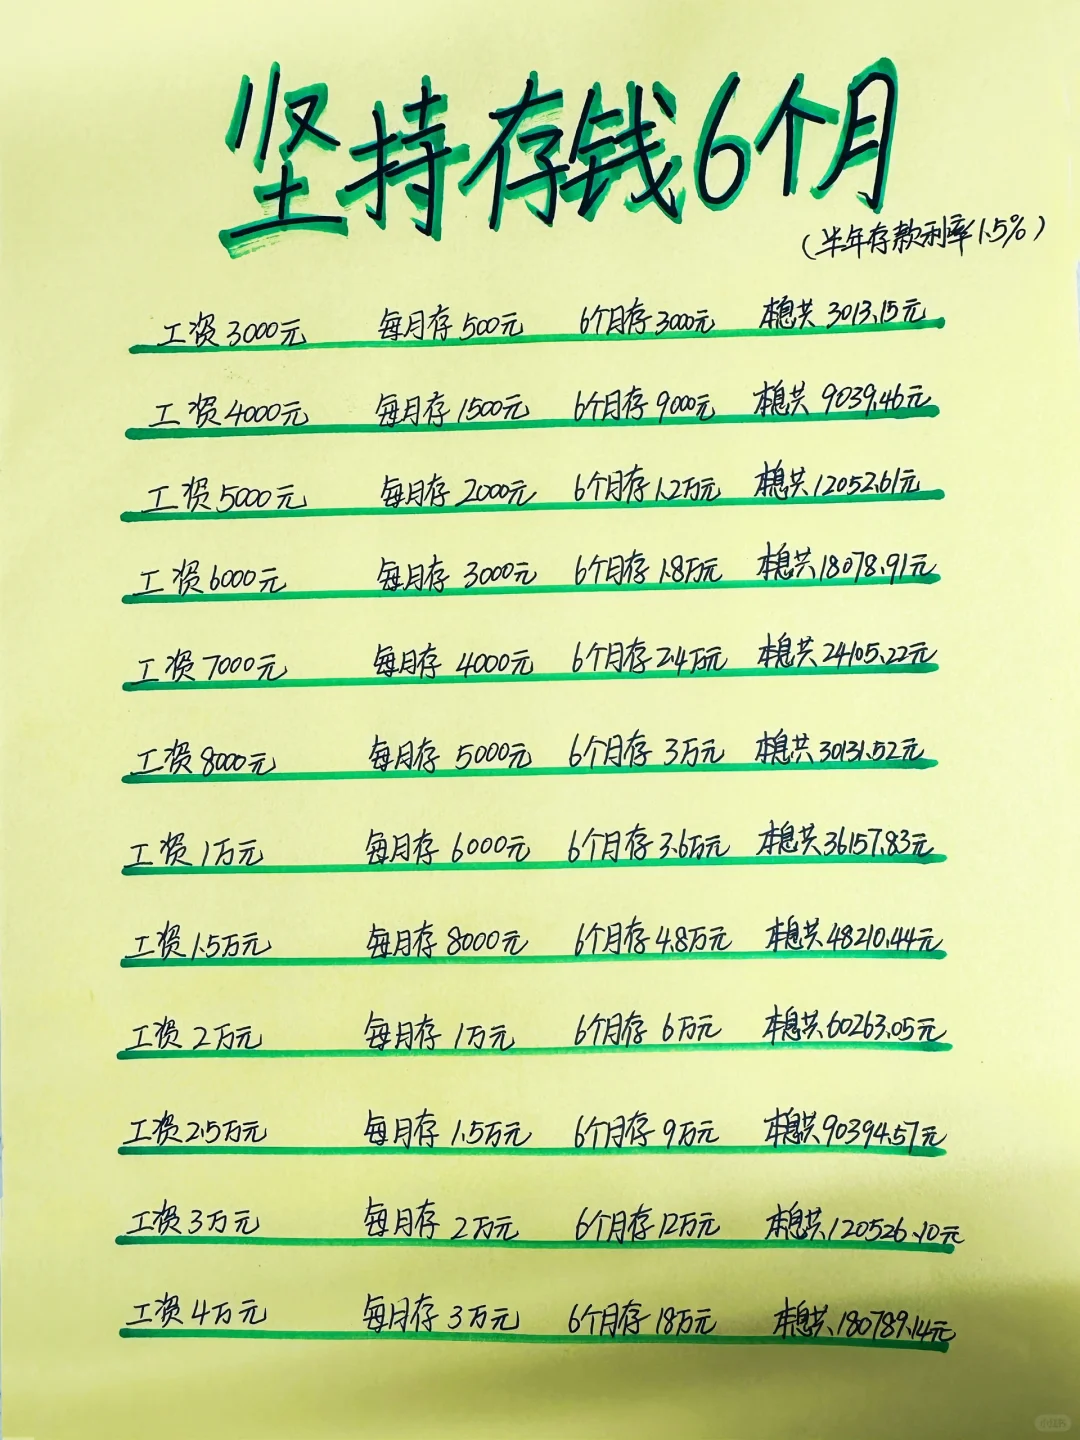 坚持存钱6个月
(半年存款利率1.5%)
工资3000元 每月存500元 6个月存3000元 本息共3013.15元
工资4000元 每月存1500元 6个月存9000元 本息共9039.46元
工资5000元 每月存2000元 6个月存1.2万元 本息共12052.61元
工资6000元 每月存3000元 6个月存1.8万元 本息共18078.91元
工资7000元 每月存4000元 6个月存2.4万元 本息共24105.22元
工资8000元 每月存5000元 6个月存3万元 本息共30131.52元
工资1万元 每月存6000元 6个月存3.6万元 本息共36157.83元
工资1.5万元 每月存8000元 6个月存4.8万元 本息共48210.44元
工资2万元 每月存1万元 6个月存6万元 本息共60263.05元
工资2.5万元 每月存1.5万元 6个月存9万元 本息共90394.57元
工资3万元 每月存2万元 6个月存12万元 本息共120526.10元
工资4万元 每月存3万元 6个月存18万元 本息共180789.14元